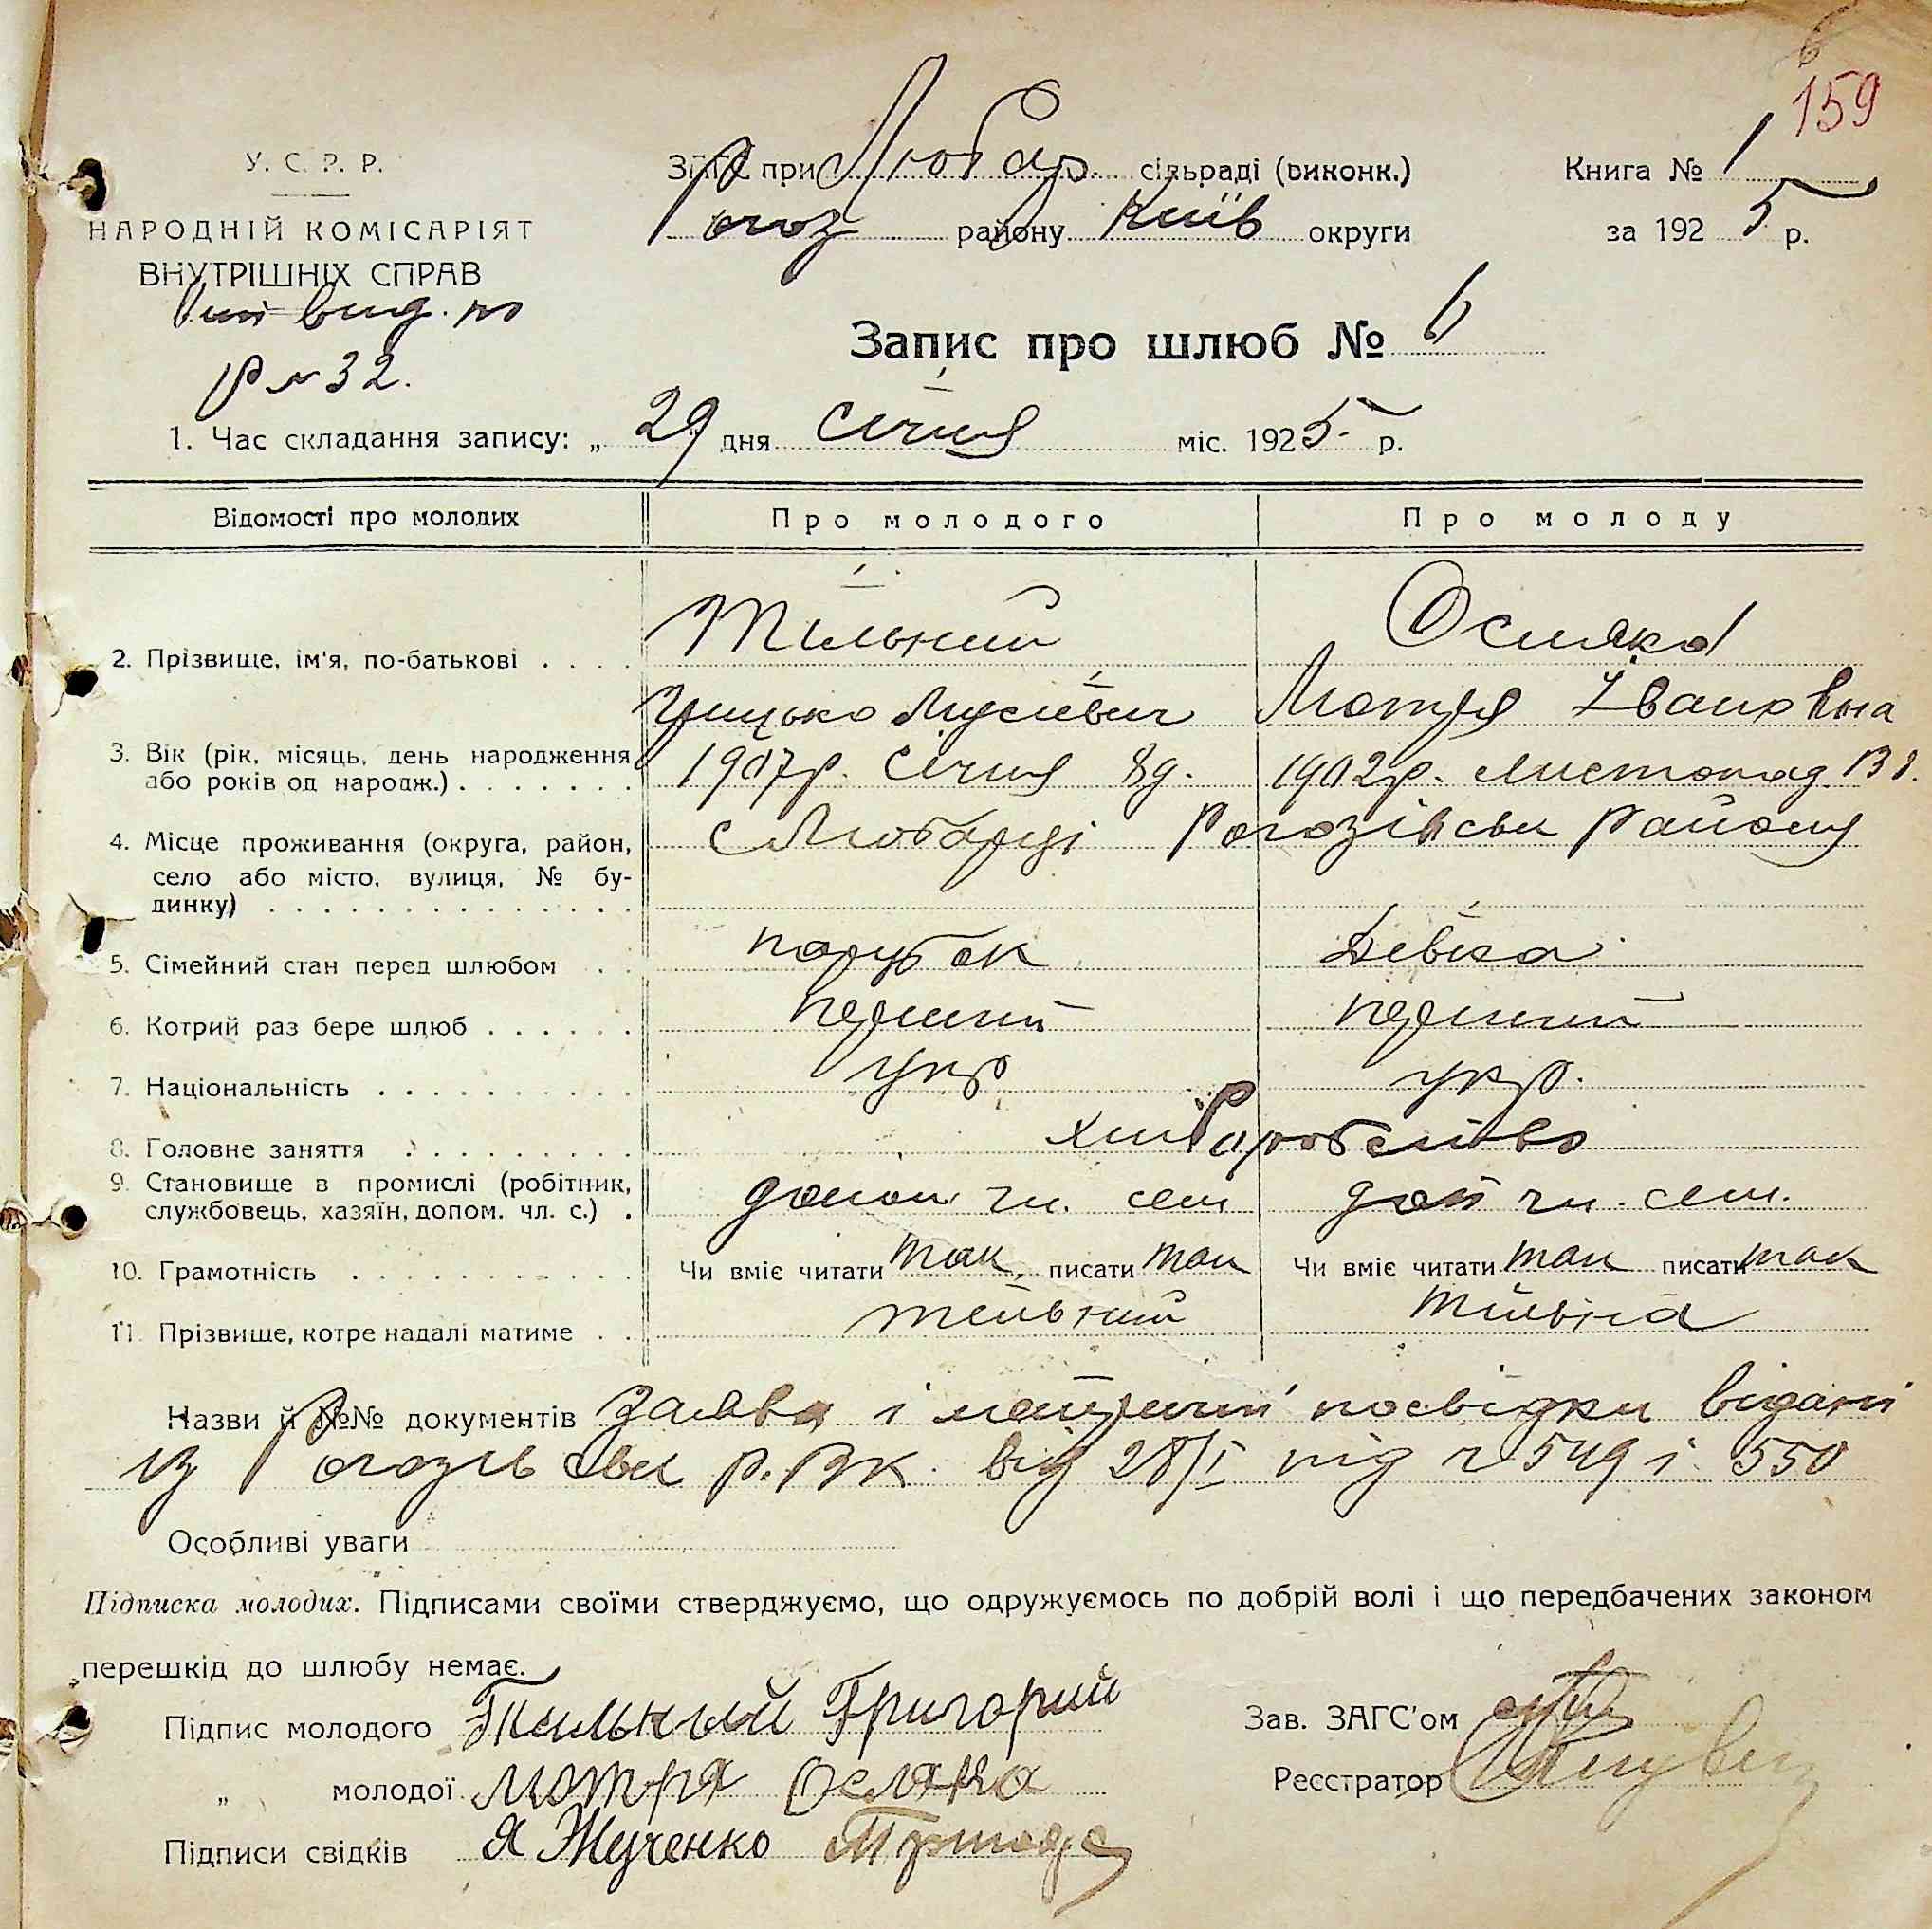 159
У. С. Р. Р.
ЗАГС при Любар. сільраді (виконк.)
Книга № 1
НАРОДНІЙ КОМІСАРІЯТ
Рогоз району Київ округи
за 1925 р.
ВНУТРІШНІХ СПРАВ
вид. по
р № 32.
Запис про шлюб № 6
1. Час складання запису: „ 29 дня січня міс. 1925 р.
Відомості про молодих
Про молодого
Про молоду
2. Прізвище, ім'я, по-батькові . . . .
Тільний
Осляка
Грицько Мусієвич
Мотря Івановна
3. Вік (рік, місяць, день народження або років од народж.) . . . . . . .
1907р. Січня 8д.
1902р. листопад 13
4. Місце проживання (округа, район, село або місто, вулиця, № будинку) . . . . . . . . . . . . . .
с Любарці Рогозівськ району
5. Сімейний стан перед шлюбом . .
парубок
Дівка
6. Котрий раз бере шлюб . . . . . .
перший
перший
7. Національність . . . . . . . . . .
укр
укр.
8. Головне заняття . . . . . . . . .
хліборобство
9. Становище в промислі (робітник, службовець, хазяїн, допом. чл. с.) .
допом чл. сем
доп чл. сем.
10. Грамотність . . . . . . . . . . .
Чи вміє читати так писати так
Чи вміє читати так писати так
11. Прізвище, котре надалі матиме . .
Тільний
Тільна
Назви й №№ документів Заява і метричні посвідки видані
із Рогозівськ р.ВК. від 28/I під № 549 і 550
Особливі уваги
Підписка молодих. Підписами своїми стверджуємо, що одружуємось по добрій волі і що передбачених законом
перешкід до шлюбу немає.
Підпис молодого Тильный Григорий
Зав. ЗАГС'ом
„ молодої Мотря Осляка
Реєстратор
Підписи свідків Я Жученко